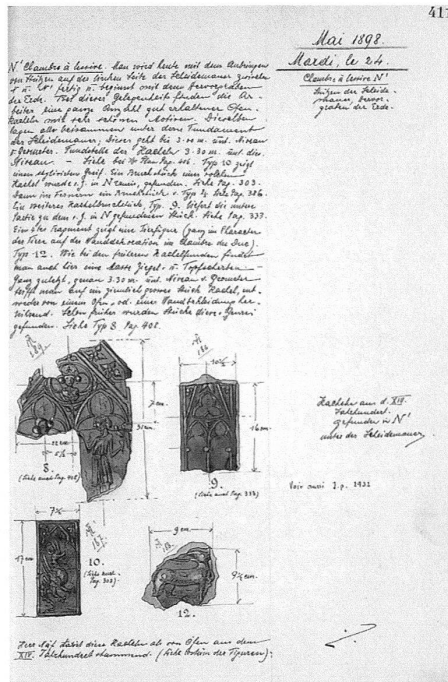 411
Mai 1898.
Mardi, le 24.
Chambre à lessive N'
Stützen der Scheide-
mauer, hervor-
graben der Erde.
N' Chambre à lessive. Man wird heute mit dem Anbringen
von Stützen auf der linken Seite der Scheidemauer zwischen
fertig u. beginnt mit dem hervorgraben
der Erde. Bei dieser Gelegenheit finden die Ar-
beiter eine ganze Anzahl gut erhaltener Ofen-
kacheln mit sehr schönen Motiven. Dieselben
lagen alle beisammen unter dem Fundament
der Scheidemauer; dieses geht bis 3.00 m. unt. Niveau
v. Geometer. Fundstelle der Kacheln 3.30 m. unt. dies.
Niveau. — Siehe bei Plan Pag. 406. Typ 10 zeigt
einen stylisierten Greif. Ein Bruchstück einer solchen
Kachel wurde s. Z. in N gefunden. Siehe Pag. 303.
Dann im Ferneren ein Bruchstück v. Typ Siehe Pag. 326.
Ein weiteres Kachelbruchstück, Typ. 9. liefert die untere
Partie zu dem s. Z. in N gefundenen Stück. Siehe Pag. 337.
Ein Fragment zeigt eine Tierfigur (ganz im Character
der Tiere auf der Wanddekoration im Chambre du Duc).
Typ 12. Wie bei den früheren Kachelfunden findet
man auch hier eine Masse Ziegel- u. Topfscherben.
Ganz zuletzt, genau 3.30 m. unt. Niveau v. Geometer
man auf ein ziemlich grosses Stück Kachel, ent-
weder von einem Ofen, od. einer Wandbekleidung her-
rührend. Schon früher wurden Stücke dieses Genres
gefunden. Siehe Typ 8 Pag. 408.
7 cm.
31 cm.
12 cm
8.
(Siehe auch Pag. 408)
16 cm.
9.
(Siehe auch Pag. 337)
Kacheln aus d. XIV.
Jahrhundert.
gefunden in N'
unter der Scheidemauer.
Voir aussi J. p. 1932
17 cm
10.
(Siehe auch
Pag. 303)
9 cm.
9½ cm.
12.
Herr Näf datiert diese Kacheln als von Ofen aus dem
XIV. Jahrhundert stammend. (Siehe Costüm der Figuren).